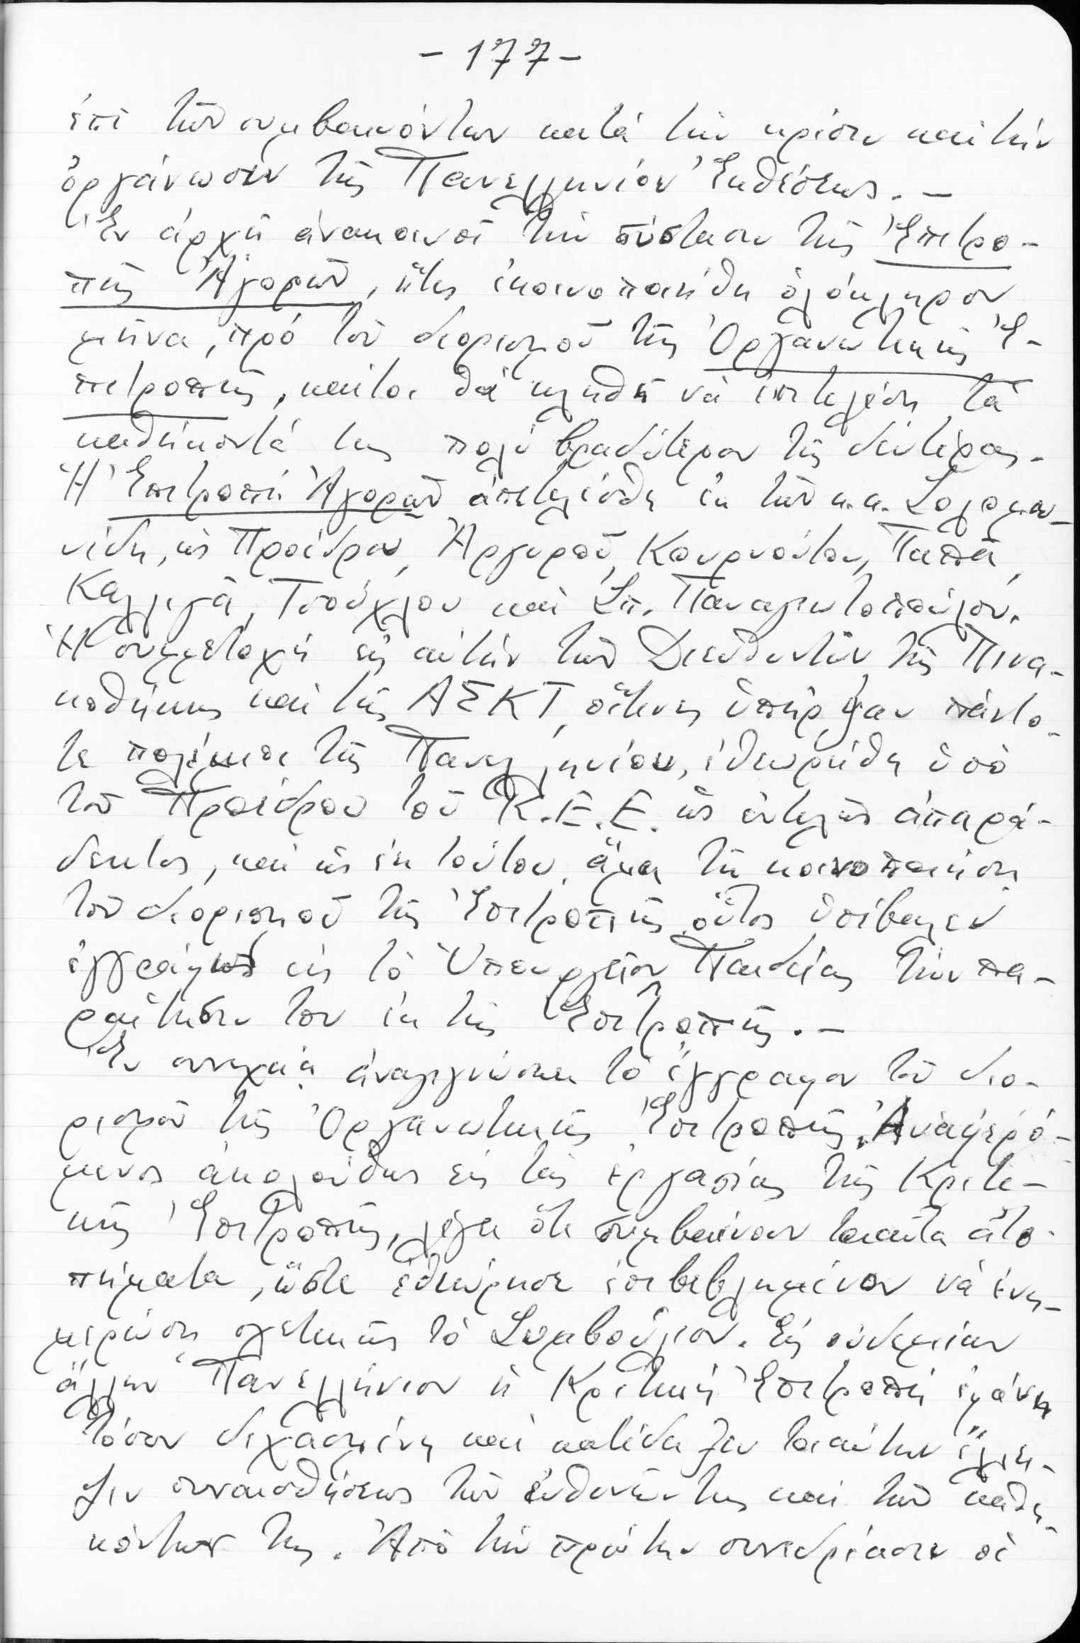 - 177 -
ἐπὶ τῶν συμβαινόντων κατά τήν κρίσιν καί τήν
ὀργάνωσιν τῆς Πανελληνίου Ἐκθέσεως. -
Ἐν ἀρχῇ ἀνακοινοῖ τήν σύστασιν τῆς Ἐπιτρο-
πῆς Ἀγορῶν, ἥτις ἐκοινοποιήθη ὁλόκληρον
μῆνα, πρό τοῦ διορισμοῦ τῆς Ὀργανωτικῆς Ἐ-
πιτροπῆς, καίτοι θά κληθῇ νά ἐπιτελέσῃ τά
καθήκοντά της πολύ βραδύτερον τῆς δευτέρας.
Ἡ Ἐπιτροπή Ἀγορῶν ἀπετελέσθη ἐκ τῶν κ.κ. Σολομω-
νίδη, ὡς Προέδρου, Ἀργυροῦ, Κουρνούτου, Παπᾶ,
Καλλιγᾶ, Τσούχλου καί Σπ. Παναγιωτοπούλου.
Ἡ συμμετοχή εἰς αὐτήν τῶν Διευθυντῶν τῆς Πινα-
κοθήκης καί τῆς ΑΣΚΤ, οἵτινες ὑπῆρξαν πάντο-
τε πολέμιοι τῆς Πανελληνίου, ἐθεωρήθη ὑπό
τοῦ Προέδρου τοῦ Κ.Ε.Ε. ὡς ἐντελῶς ἀπαρά-
δεκτος, καί ὡς ἐκ τούτου, ἅμα τῇ κοινοποιήσει
τοῦ διορισμοῦ τῆς Ἐπιτροπῆς οὗτος ὑπέβαλεν
ἐγγράφως εἰς τό Ὑπουργεῖον Παιδείας τήν πα-
ραίτησίν του ἐκ τῆς Ἐπιτροπῆς. -
Ἐν συνεχείᾳ ἀναγιγνώσκει τό ἔγγραφον τοῦ διο-
ρισμοῦ τῆς Ὀργανωτικῆς Ἐπιτροπῆς. Ἀναφερό-
μενος ἀκολούθως εἰς τάς ἐργασίας τῆς Κριτι-
κῆς Ἐπιτροπῆς, λέγει ὅτι συμβαίνουν τοιαῦτα ἀτο-
πήματα, ὥστε ἐθεώρησε ἐπιβεβλημένον νά ἐνη-
μερώσῃ σχετικῶς τό Συμβούλιον. Εἰς οὐδεμίαν
ἄλλην Πανελλήνιον ἡ Κριτική Ἐπιτροπή ἐφάνη
τόσον διχασμένη καί κατέδειξεν τοιαύτην ἔλλει-
ψιν συναισθήσεως τῶν εὐθυνῶν της καί τῶν καθη-
κόντων της. Ἀπό τήν πρώτην συνεδρίασιν οἱ